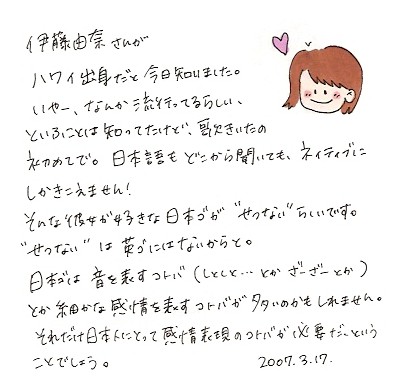 伊藤由奈さんが
ハワイ出身だと今日知りました。
いやー、なんか流行ってるらしい、
ということは知ってたけど、歌きいたの
初めてで。日本語もどこから聞いても、ネイティブに
しかきこえません!
そんな彼女が好きな日本ゴが"せつない"らしいです。
"せつない"は英ゴにはないからと。
日本ゴは音を表すコトバ(しとしと…とかざーざーとか)
とか細かな感情を表すコトバが多いのかもしれません。
それだけ日本人にとって感情表現のコトバが必要だ、という
ことでしょう。
2007.3.17.